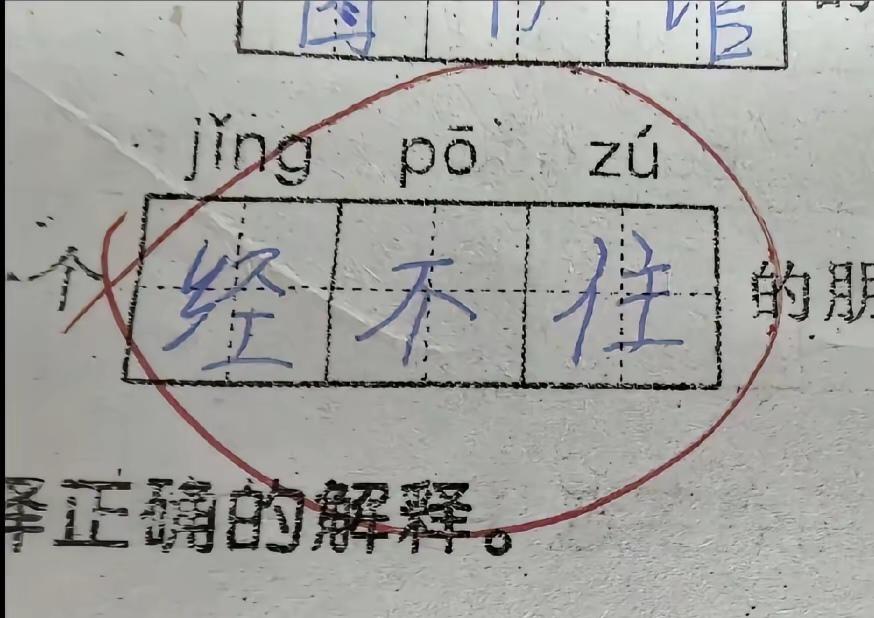 jǐng pō zú
一个经不住的朋
正确的解释。